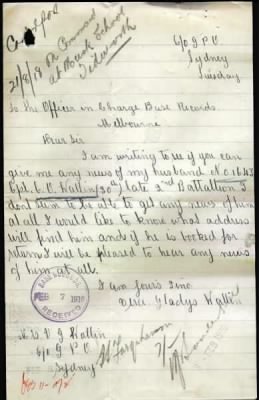 21/8/18 On Command
at Musk School
Tidworth
c/o G P O
Sydney
Tuesday
To The Officer in Charge Base Records
Melbourne
Dear Sir
I am writing to see if you can
give me any news of my husband No 1643
Cpl. C. V Wallin (30th) late 3rd Battallion I
dont seem to be able to get any news of him
at all I would like to know what address
will find him and if he is booked for
return I will be pleased to hear any news
of him at all.
I am yours Sinc.
Gladys Wallin
BASE RECORDS
FEB 7 1919
RECEIVED
Mrs V G Wallin
c/o G P O
Sydney